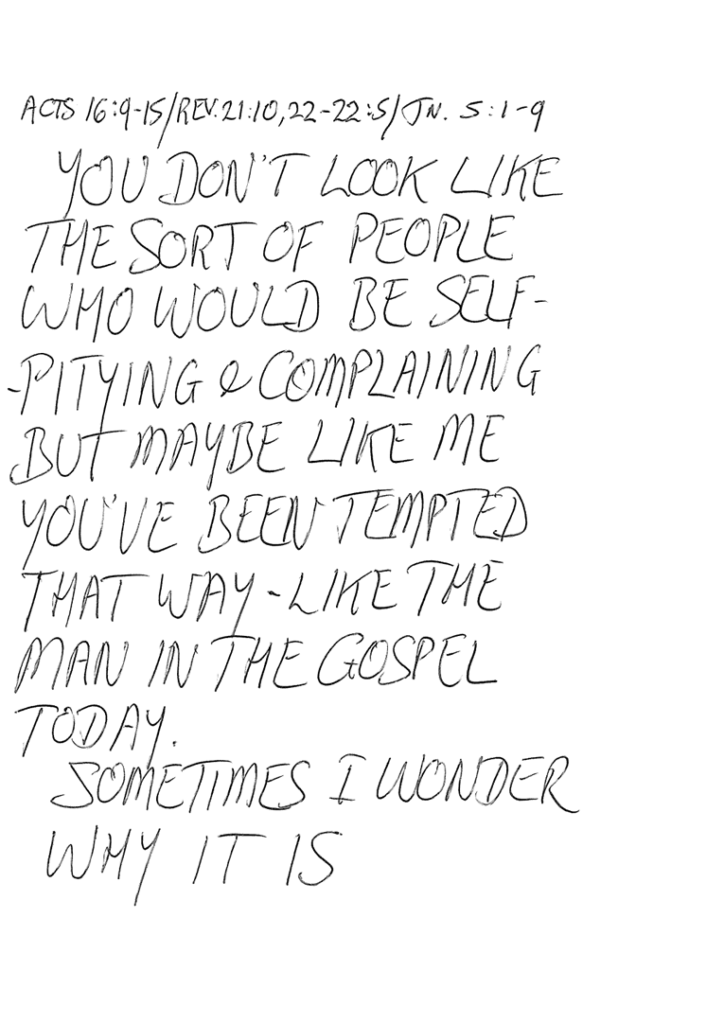 ACTS 16:9-15/REV.21:10,22-22:5/JN. 5:1-9
YOU DON'T LOOK LIKE
THE SORT OF PEOPLE
WHO WOULD BE SELF-
-PITYING & COMPLAINING
BUT MAYBE LIKE ME
YOU'VE BEEN TEMPTED
THAT WAY-LIKE THE
MAN IN THE GOSPEL
TODAY.
SOMETIMES I WONDER
WHY IT IS